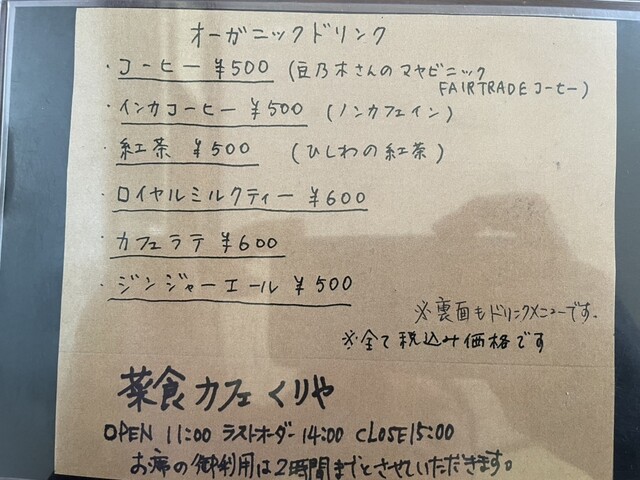 オーガニックドリンク
・コーヒー ¥500 (豆乃木さんのマヤビニック
FAIRTRADEコーヒー)
・インカコーヒー ¥500 (ノンカフェイン)
・紅茶 ¥500 (ひしわの紅茶)
・ロイヤルミルクティー ¥600
・カフェラテ ¥600
・ジンジャーエール ¥500
※裏面もドリンクメニューです.
※全て税込み価格です
菜食カフェくりや
OPEN 11:00 ラストオーダー14:00 CLOSE15:00
お席の御利用は2時間までとさせていただきます。